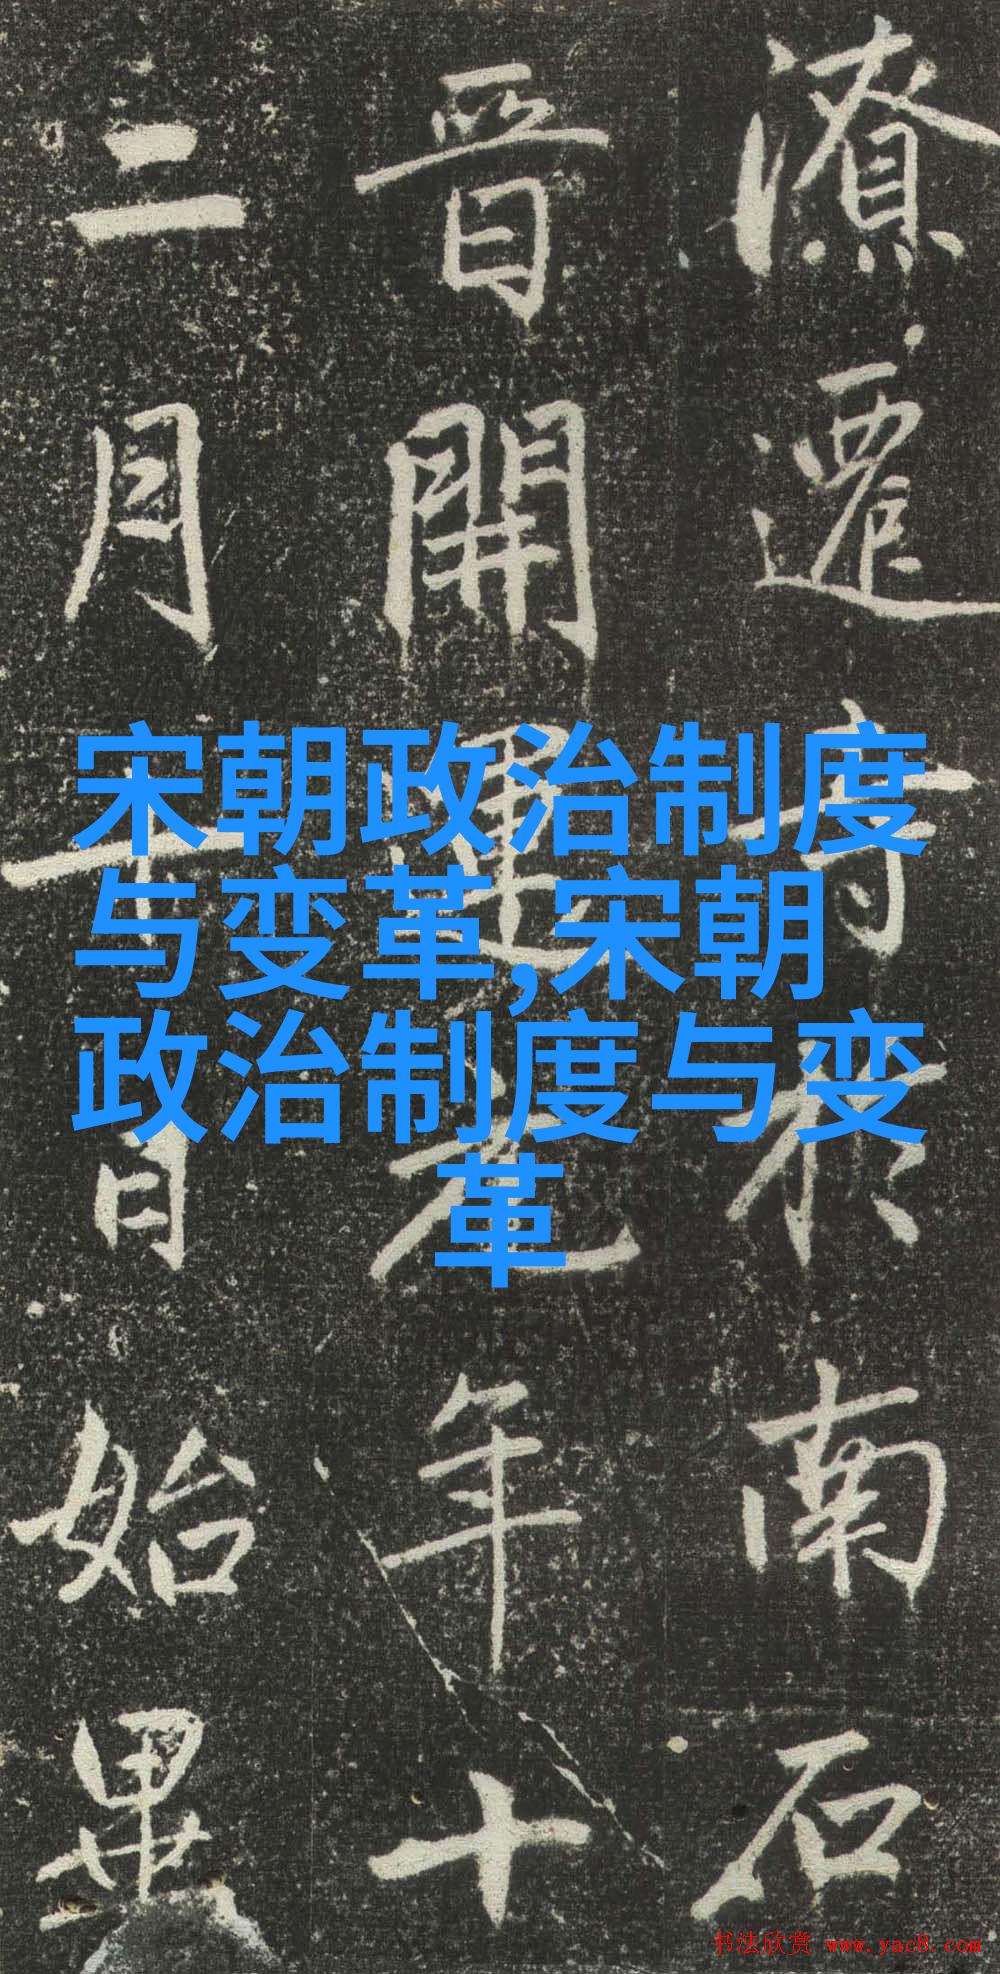 潦遷寺於南石
晉開運元年十
二月十日始畢
宋朝政治制度
与变革,宋朝
政治制度与变
革
书法欣赏 www.yac8.com